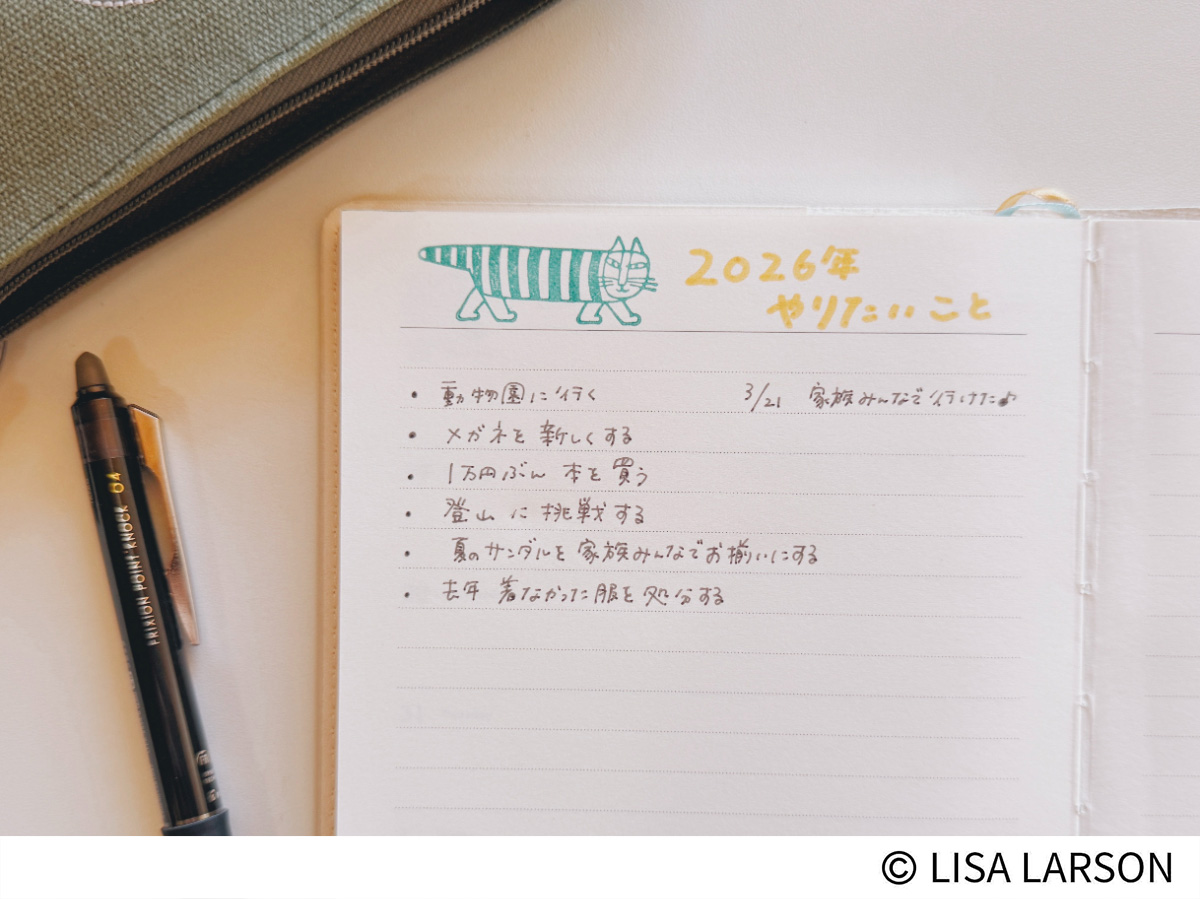 2026年
やりたいこと
・動物園に行く 3/21 家族みんなで行けた♪
・メガネを新しくする
・1万円ぶん 本を買う
・登山に挑戦する
・夏のサンダルを家族みんなでお揃いにする
・去年着なかった服を処分する
FRIXION POINT KNOCK 04
© LISA LARSON